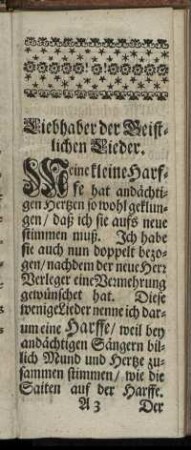 Liebhaber der Geist-
lichen Lieder.
Meine kleine Harf-
fe hat andächti-
gen Hertzen so wohl geklun-
gen / daß ich sie aufs neue
stimmen muß. Ich habe
sie auch nun doppelt bezo-
gen / nachdem der neue Herr
Verleger eine Vermehrung
gewünschet hat. Diese
wenige Lieder nenne ich dar-
um eine Harffe / weil bey
andächtigen Sängern bil-
lich Mund und Hertze zu-
sammen stimmen / wie die
Saiten auf der Harffe.
A 3 Der